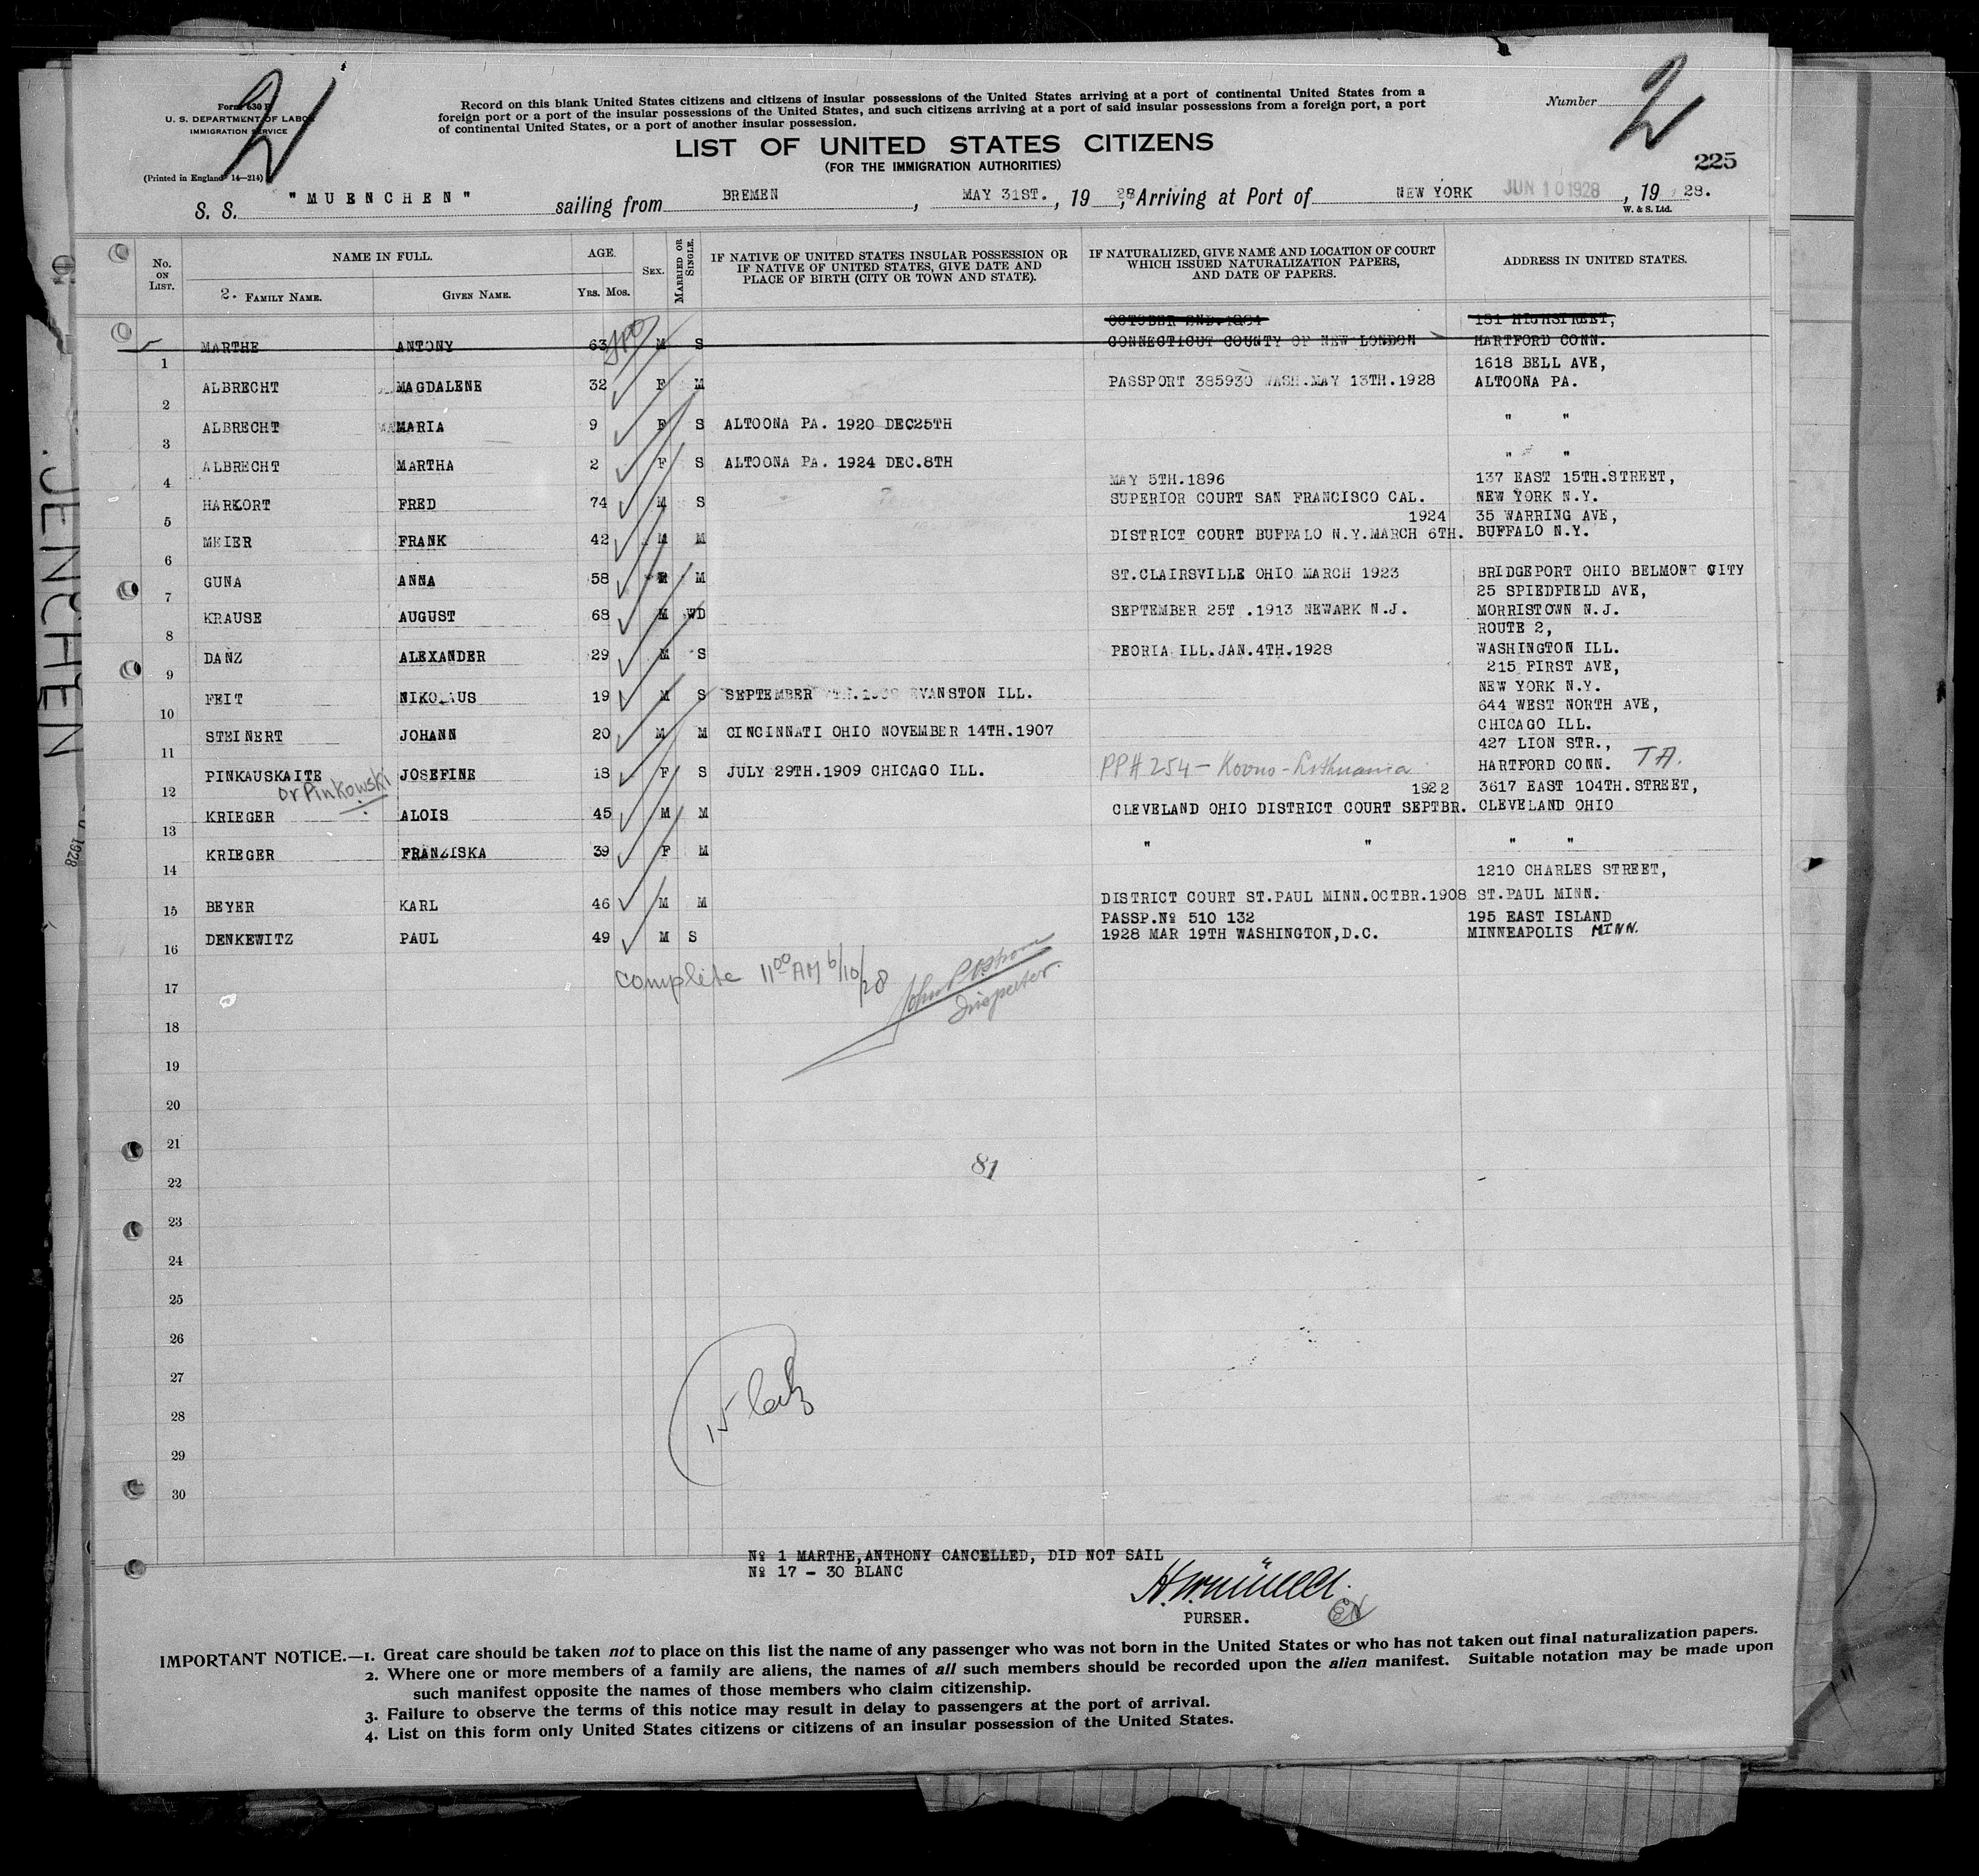 Form 630 F
U. S. DEPARTMENT OF LABOR
IMMIGRATION SERVICE
(Printed in England 14—214)
2
Record on this blank United States citizens and citizens of insular possessions of the United States arriving at a port of continental United States from a
foreign port or a port of the insular possessions of the United States, and such citizens arriving at a port of said insular possessions from a foreign port, a port
of continental United States, or a port of another insular possession.
LIST OF UNITED STATES CITIZENS
(FOR THE IMMIGRATION AUTHORITIES)
Number
2
225
S. S. "MUENCHEN" sailing from BREMEN, MAY 31ST., 1928, Arriving at Port of NEW YORK JUN 10 1928, 1928.
W. & S. Ltd.
No. ON LIST. NAME IN FULL. AGE. SEX. MARRIED OR SINGLE. IF NATIVE OF UNITED STATES INSULAR POSSESSION OR IF NATIVE OF UNITED STATES, GIVE DATE AND PLACE OF BIRTH (CITY OR TOWN AND STATE). IF NATURALIZED, GIVE NAME AND LOCATION OF COURT WHICH ISSUED NATURALIZATION PAPERS, AND DATE OF PAPERS. ADDRESS IN UNITED STATES.
2. FAMILY NAME. GIVEN NAME. YRS. MOS.
OCTOBER 2ND. 181 HIGHSTREET,
1 MARTHE ANTONY 63 M S CONNECTICUT COUNTY OF NEW LONDON HARTFORD CONN.
1618 BELL AVE,
2 ALBRECHT MAGDALENE 32 F M PASSPORT 385930 WASH.MAY 13TH.1928 ALTOONA PA.
3 ALBRECHT MARIA 9 F S ALTOONA PA. 1920 DEC25TH " "
4 ALBRECHT MARTHA 2 F S ALTOONA PA. 1924 DEC.8TH " "
MAY 5TH.1896 137 EAST 15TH.STREET,
5 HARKORT FRED 74 M S SUPERIOR COURT SAN FRANCISCO CAL. NEW YORK N.Y.
1924 35 WARRING AVE,
6 MEIER FRANK 42 M M DISTRICT COURT BUFFALO N.Y.MARCH 6TH. BUFFALO N.Y.
7 GUNA ANNA 58 M ST.CLAIRSVILLE OHIO MARCH 1923 BRIDGEPORT OHIO BELMONT CITY
25 SPIEDFIELD AVE,
8 KRAUSE AUGUST 68 M WD SEPTEMBER 25T .1913 NEWARK N.J. MORRISTOWN N.J.
ROUTE 2,
9 DANZ ALEXANDER 29 M S PEORIA ILL.JAN.4TH.1928 WASHINGTON ILL.
215 FIRST AVE,
10 FEIT NIKOLAUS 19 M S SEPTEMBER EVANSTON ILL. NEW YORK N.Y.
644 WEST NORTH AVE,
11 STEINERT JOHANN 20 M M CINCINNATI OHIO NOVEMBER 14TH.1907 CHICAGO ILL.
427 LION STR.,
12 PINKAUSKAITE JOSEFINE 18 F S JULY 29TH.1909 CHICAGO ILL. PP# 254 - Kovno - Lithuania HARTFORD CONN. TA.
or Pinkowski
1922 3617 EAST 104TH.STREET,
13 KRIEGER ALOIS 45 M M CLEVELAND OHIO DISTRICT COURT SEPTBR. CLEVELAND OHIO
14 KRIEGER FRANZISKA 39 F M " " " "
1210 CHARLES STREET,
15 BEYER KARL 46 M M DISTRICT COURT ST.PAUL MINN.OCTBR.1908 ST.PAUL MINN.
PASSP.№ 510 132 195 EAST ISLAND
16 DENKEWITZ PAUL 49 M S 1928 MAR 19TH WASHINGTON,D.C. MINNEAPOLIS MINN.
complete 11 00 AM 6/10/28
Inspector.
17
18
19
20
21
81
22
23
24
25
26
27
28
29
30
№ 1 MARTHE,ANTHONY CANCELLED, DID NOT SAIL
№ 17 - 30 BLANC
PURSER.
IMPORTANT NOTICE.—1. Great care should be taken not to place on this list the name of any passenger who was not born in the United States or who has not taken out final naturalization papers.
2. Where one or more members of a family are aliens, the names of all such members should be recorded upon the alien manifest. Suitable notation may be made upon
such manifest opposite the names of those members who claim citizenship.
3. Failure to observe the terms of this notice may result in delay to passengers at the port of arrival.
4. List on this form only United States citizens or citizens of an insular possession of the United States.